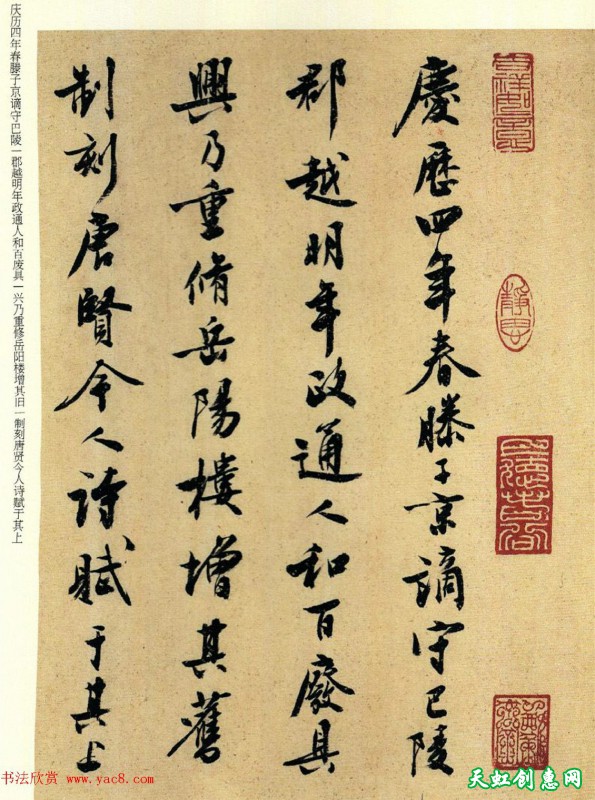 慶歷四年春滕子京謫守巴陵
郡越明年政通人和百廢具
興乃重脩岳陽樓增其舊
制刻唐賢今人詩賦于其上
庆历四年春滕子京谪守巴陵一郡越明年政通人和百废具一兴乃重修岳阳楼增其旧一制刻唐贤今人诗赋于其上
书法欣赏 www.yac8.com
天虹创意网